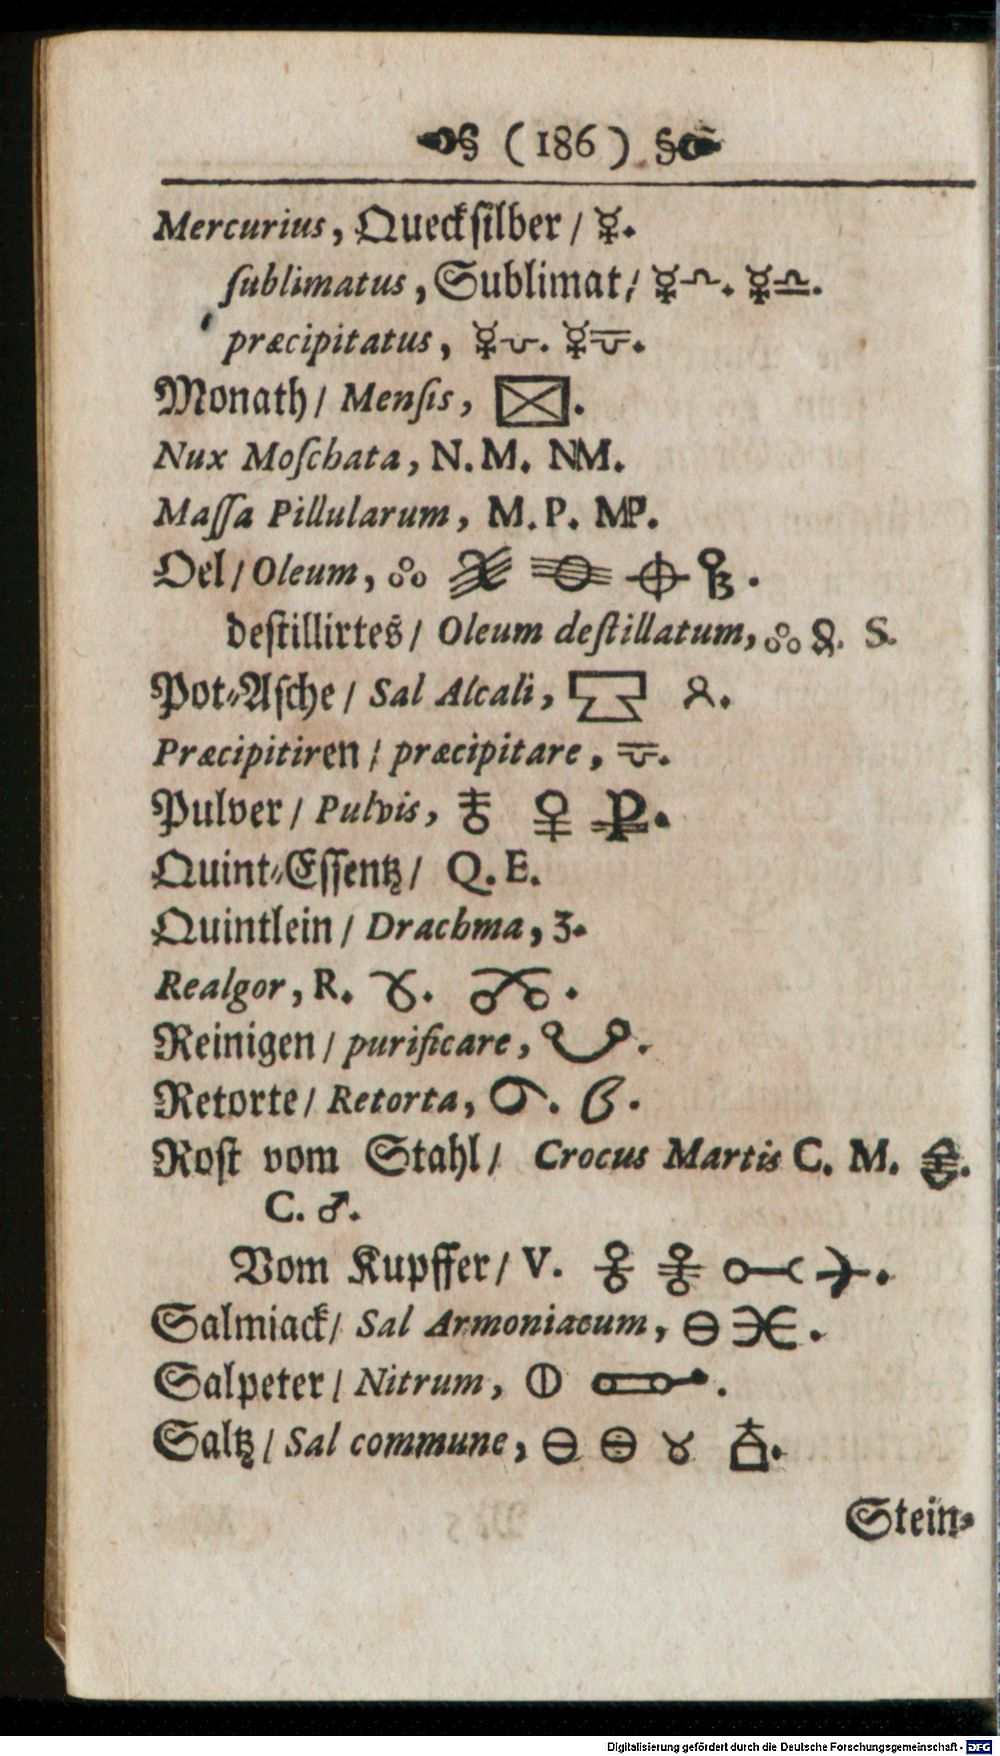 § (186) §
Mercurius, Queckſilber / ☿.
ſublimatus, Sublimat / ☿. ☿♎.
præcipitatus, ☿. ☿.
Monath / Menſis,
Nux Moſchata, N. M. NM.
Maſſa Pillularum, M. P. MP.
Oel / Oleum,
deſtillirtes / Oleum deſtillatum, S.
Pot-Aſche / Sal Alcali,
Præcipitiren / præcipitare,
Pulver / Pulvis, ♀
Quint-Eſſentz / Q. E.
Quintlein / Drachma, ʒ.
Realgor, R.
Reinigen / purificare,
Retorte / Retorta,
Roſt vom Stahl / Crocus Martis C. M.
C. ♂.
Vom Kupffer / V.
Salmiack / Sal Armoniacum, ⊖
Salpeter / Nitrum, ⦶
Saltz / Sal commune, ⊖ ⊕ ♉
Stein-
Digitalisierung gefördert durch die Deutsche Forschungsgemeinschaft - DFG